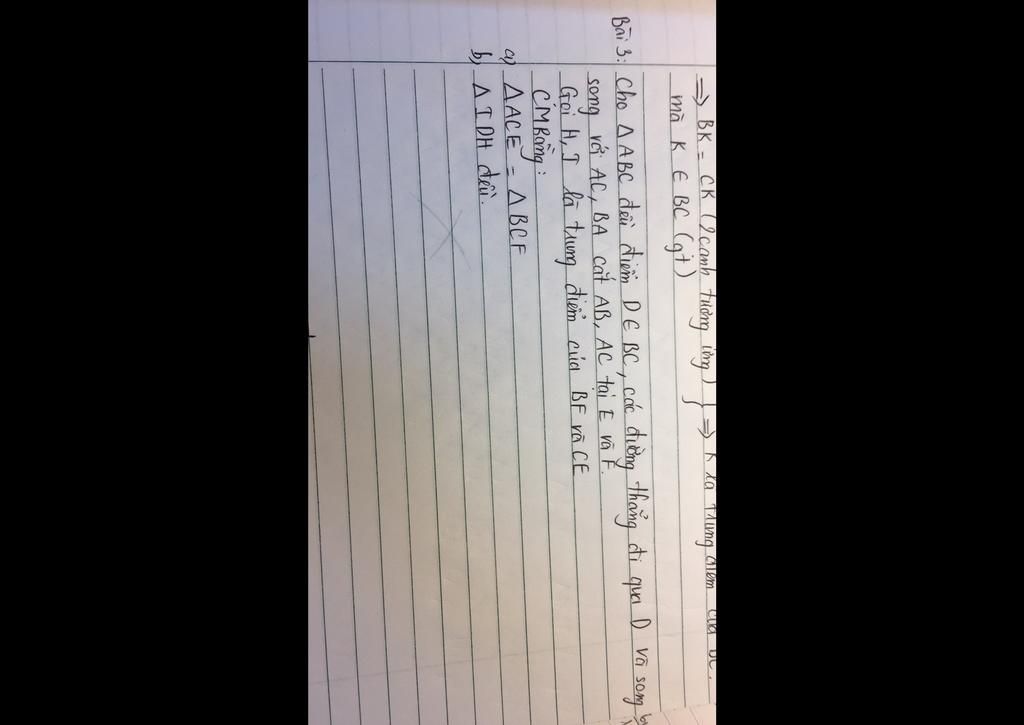 => BK = CK (2 cạnh tương ứng) } => K là trung điểm của BC.
mà K ∈ BC (gt)
Bài 3: Cho ΔABC đều điểm D ∈ BC, các đường thẳng đi qua D và song
song với AC, BA cắt AB, AC tại E và F.
Gọi H, I là trung điểm của BF và CE
CM Rằng:
a) ΔACE = ΔBCF
b) ΔIDH đều.